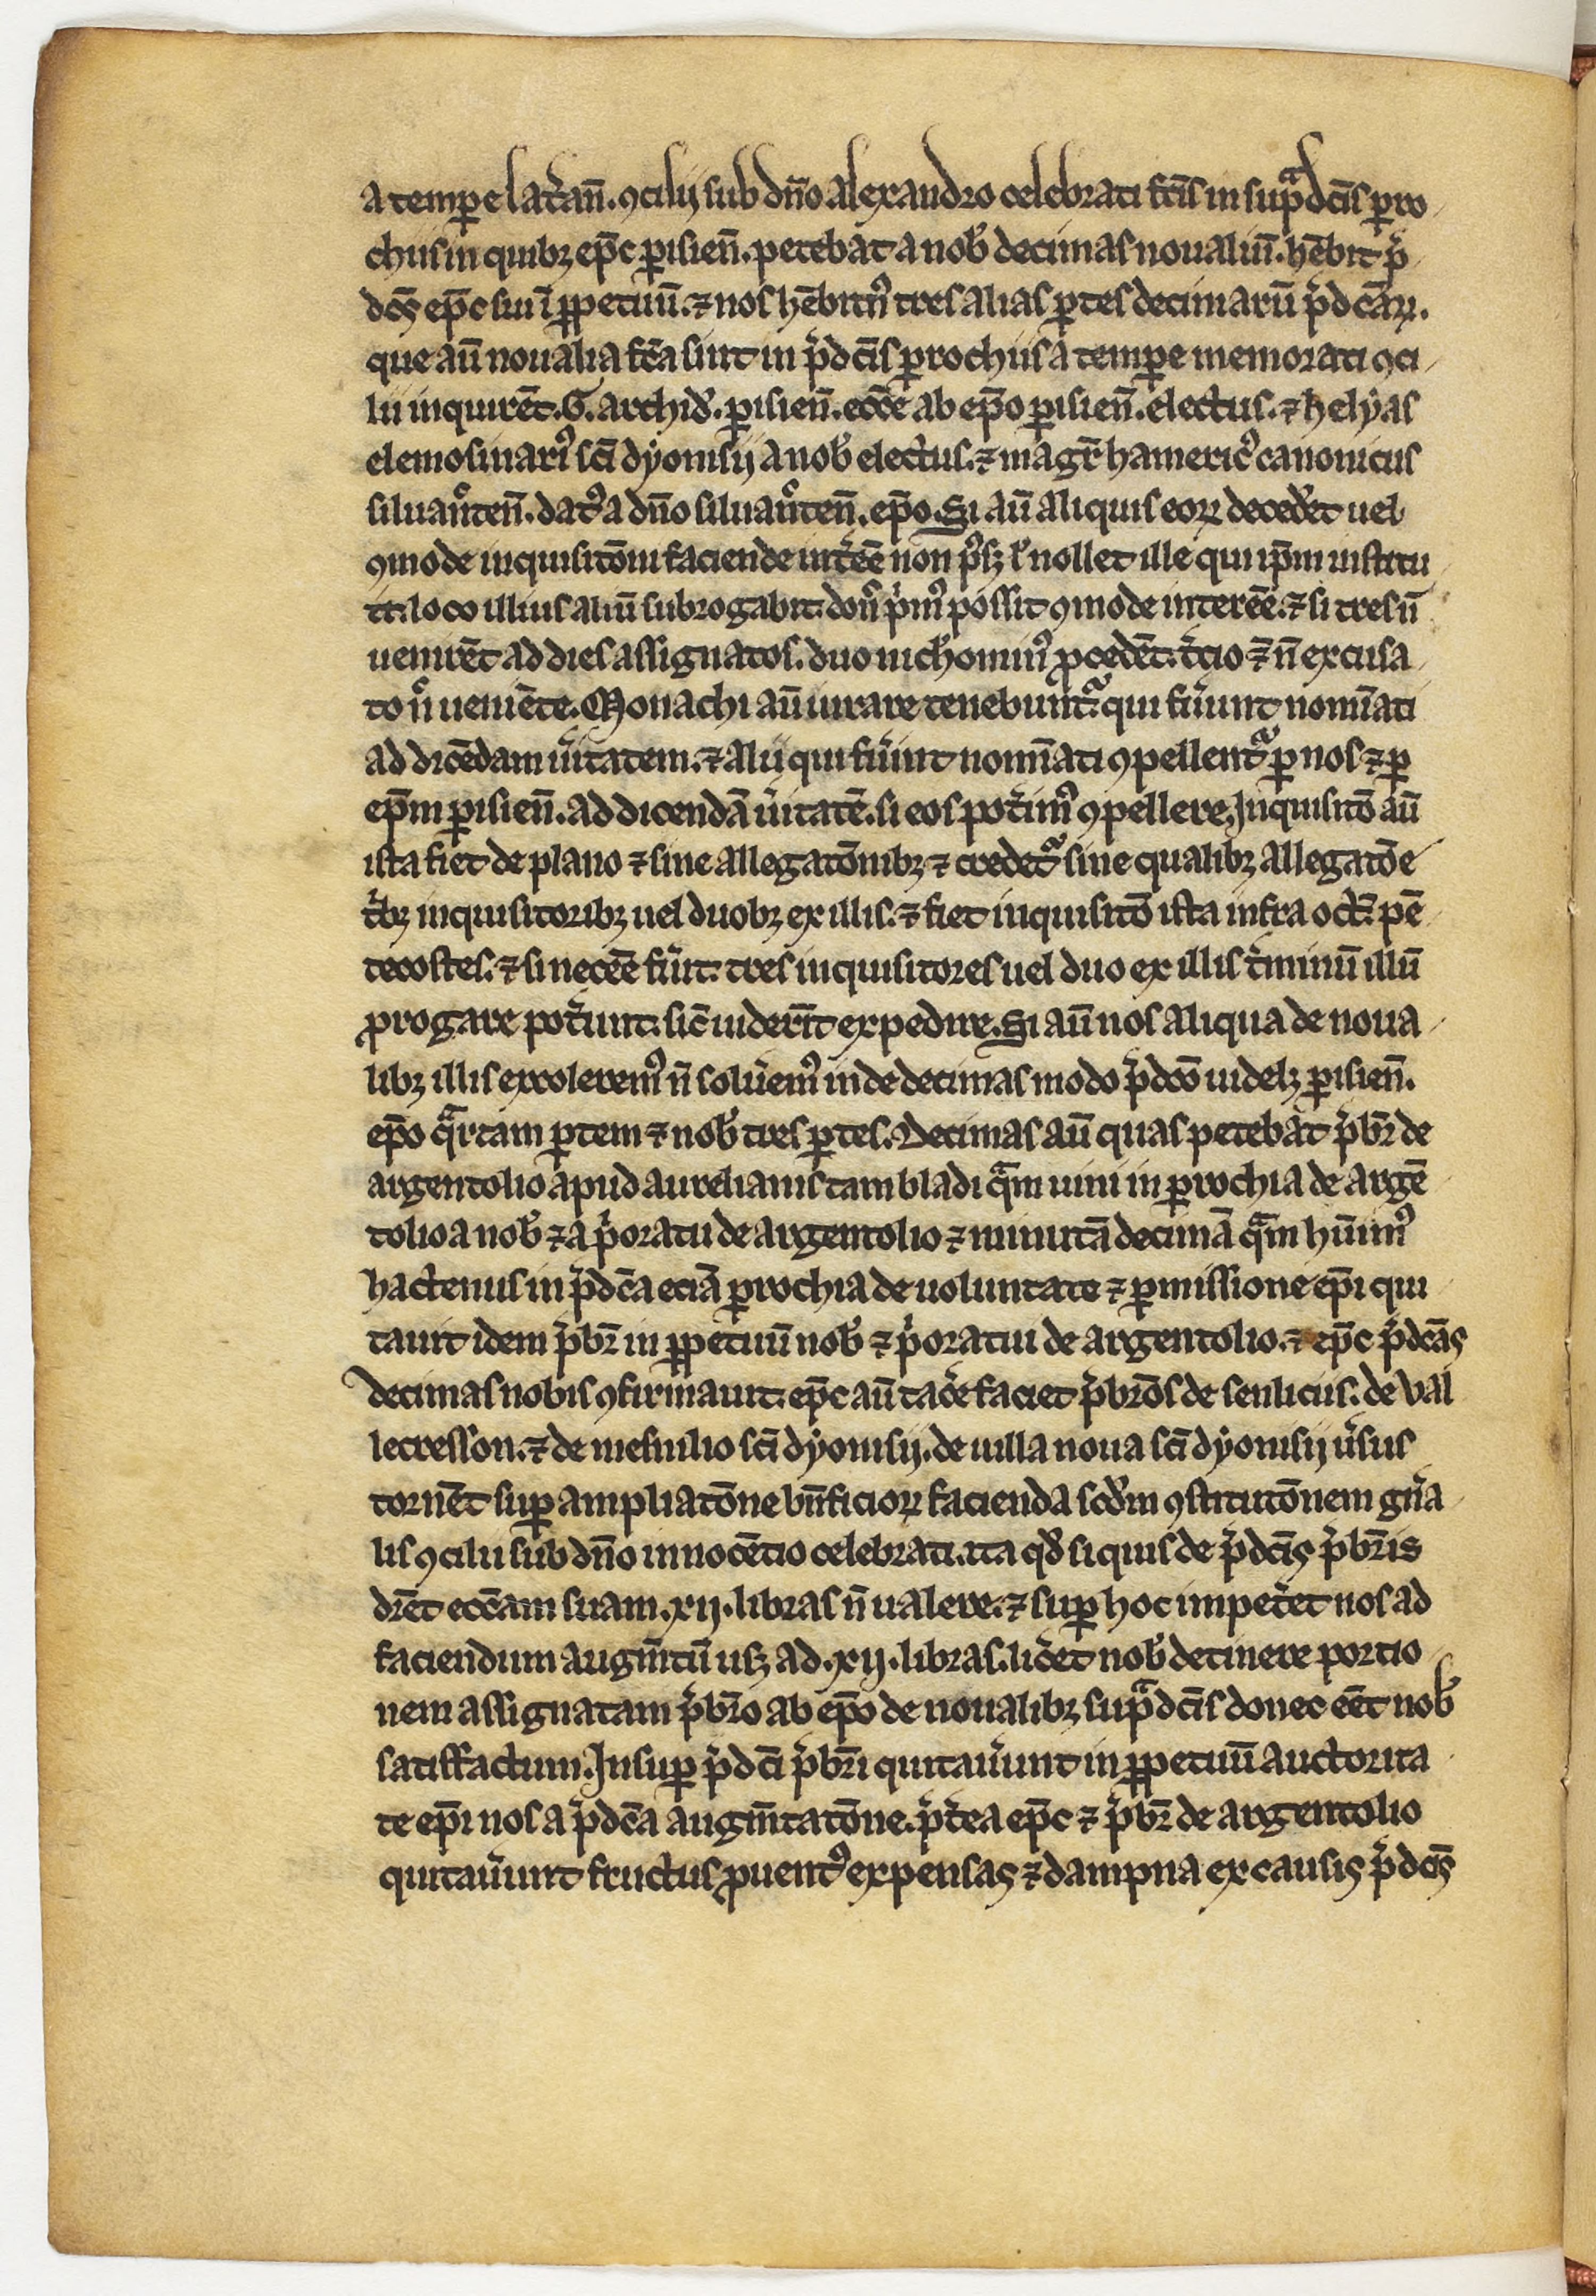 a temp̲e lat̾an̄. ꝯcilij sub dn̄o alexandro celebrati fc̄is in sup̲ᵃdc̄is p̲ro
chiis in quibꝫ ep̄c p̲isien̄. petebat a nob̾ decimas noualiū. hēbit p̾
dc̄s ep̄c sui ī p̲petuū. ⁊ nos hēbimꝰ tres alias p̲tes decimarū p̾dcāꝝ.
que aū noualia fc̄a sint in p̾dc̄is p̲rochiis a temp̲e memorati ꝯci
lii inquirēt. G. archid̾. p̲isien̄. ecc̄e ab ep̄o p̲isien̄. electus. ⁊ helyas
elemosinariꝰ sc̄i dyonisij a nob̾ electus. ⁊ magr̄ hamericꝰ canonicus
siluan̾ten̄. datꝰ a dn̄o siluan̾ten̄. ep̄o. Si aū aliquis eoꝝ deced̾et uel
ꝯmode inquisitōni faciende int̾eē non pꝰsꝫ l̾ nollet ille qui ip̄m institu
it. loco illius aliū subrogabit. don̾ p̾mꝰ possit ꝯmode intereē. ⁊ si tres n̄
uenirēt ad dies assignatos. duo nich̾ominꝰ ꝓcedēt. t̾cio ⁊ n̄ excusa
to n̾ ueniēte. Monachi aū iurare tenebunt̾. qui fu̾unt nomīati
ad dicēdam u̾itatem. ⁊ alij qui fu̾int nomīati ꝯpellent̾ p̲ nos ⁊ p̲
ep̄m p̲isien̄. ad dicendā u̾itatē. si eos pot̾imꝰ ꝯpellere. Inquisitō aū
ista fiet de plano ⁊ sine allegatōnibꝫ ⁊ credet̾ sine qualibꝫ allegatōe
t̾bꝫ inquisitoribꝫ uel duobꝫ ex illis. ⁊ fiet inquisitō ista infra oct̾. pē
tecostes. ⁊ si neceē fu̾it. tres inquisitores uel duo ex illis t̾minū illū
ꝓrogare pot̾unt. sic̄ uiderīt expedire. Si aū nos aliqua de noua
libꝫ illis excoleremꝰ n̄ solu̾emꝰ inde decimas modo p̾dc̄o uidelꝫ p̲isien̄.
ep̄o qᵃrtam p̲tem ⁊ nob̾ tres p̲tes. Decimas aū quas petebat p̾br̄ de
argentolio apud aurelianis tam bladi qᵃm uini in p̲rochia de argē
tolio a nob̾ ⁊ a p̾oratu de argentolio ⁊ minutā decimā qᵃm hūimꝰ
hactenus in p̾dc̄a eciā p̲rochia de uoluntate ⁊ p̲missione ep̄i qui
tauit idem p̾br̄ in p̲petuū nob̾ ⁊ p̾oratui de argentolio. ⁊ ep̄c p̾dcās
decimas nobis ꝯfirmauit. ep̄c aū tac̾e faciet p̾brōs de senlicius. de val
lecresson. ⁊ de mesnilio sc̄i dyonisij. de uilla noua sc̄i dyonisij u̾sus
tornēt sup̲ ampliatōne bn̄ficioꝝ facienda scd̾m ꝯstitutōnem gn̾a
lis ꝯcilii sub dn̄o innocētio celebrati. ita qd̾ si quis de p̾dc̄is p̾br̄is
dr̄et ecc̄am suam .xij. libras n̄ ualere. ⁊ sup̲ hoc impet̾et nos ad
faciendum augm̄tū usꝫ ad .xij. libras. lic̾et nob̾ detinere portio
nem assignatam p̾br̄o ab ep̄o de noualibꝫ sup̲ᵃdc̄is donec eēt nob̾
satisfactum. Insup̲ p̾dc̄i p̾br̄i quitau̾unt in p̲petuū auctorita
te ep̄i nos a p̾dc̄a augm̄tatōne. p̾t̾ea ep̄c ⁊ p̾br̄ de argentolio
quitau̾unt fructus ꝓuentꝰ expensas ⁊ dampna ex causis p̾dc̄is